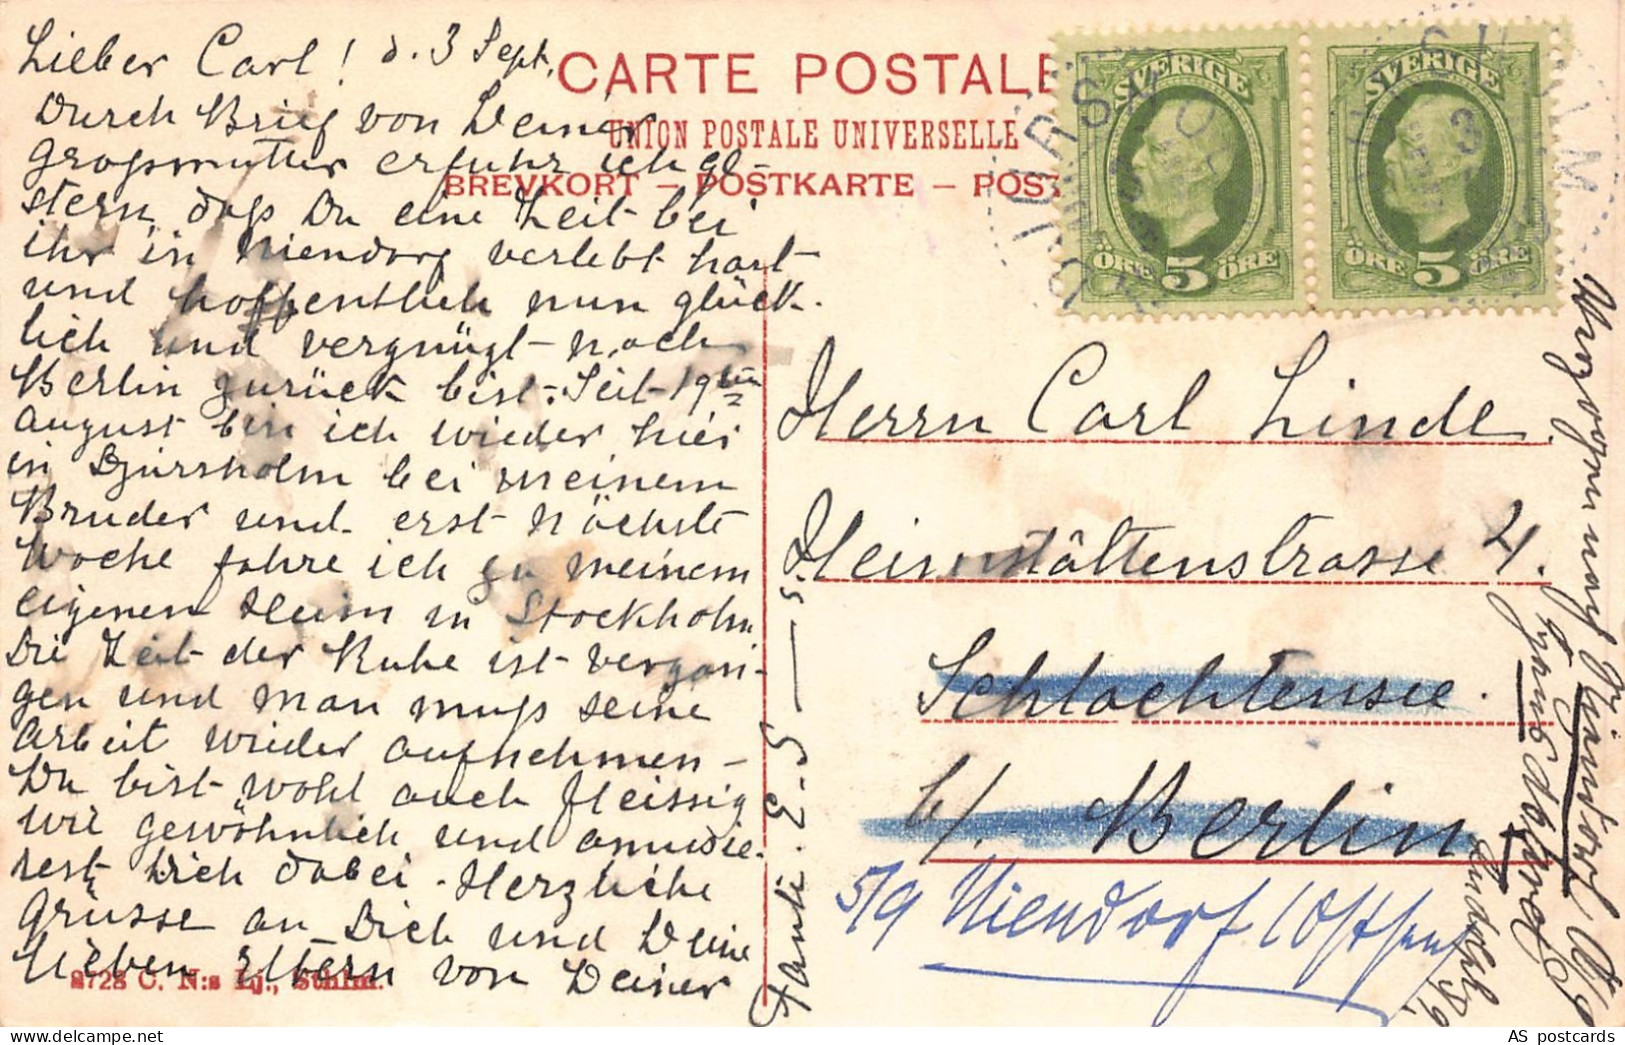 Lieber Carl! d. 3 Sept.
Durch Brief von Deiner
Grossmutter erfuhr ich ge-
stern, dass Du eine Zeit bei
ihr in Niendorf verlebt hast
und hoffentlich nun glück-
lich und vergnügt nach
Berlin zurück bist. Seit 19ten
August bin ich wieder hier
in Djursholm bei meinem
Bruder und erst nächste
Woche fahre ich zu meinem
eigenen Heim in Stockholm
Die Zeit der Ruhe ist vergan-
gen und man muss seine
Arbeit wieder aufnehmen -
Du bist wohl auch fleissig
wie gewöhnlich und amüsie-
rest Dich dabei. Herzliche
Grüsse an Dich und Deine
lieben Eltern von Deiner
Tante. E. S
CARTE POSTALE
UNION POSTALE UNIVERSELLE
BREVKORT – POSTKARTE – POST
SVERIGE
5 ÖRE ÖRE
SVERIGE
5 ÖRE ÖRE
DJURSHOLM
Herrn Carl Linde.
Heimstättenstrasse 4.
Schlachtensee.
b/. Berlin
5/9 Niendorf (Ostsee)
Niendorf
8728 C. N:s Lj., Sthlm.
AS postcards